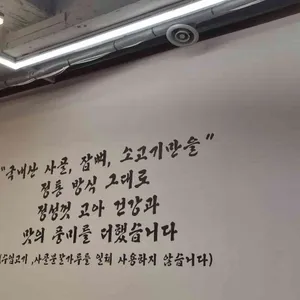 "국내산 사골, 잡뼈, 소고기만을"
정통 방식 그대로
정성껏 고아 건강과
맛의 풍미를 더했습니다
,사골분말가루를 일체 사용하지 않습니다)